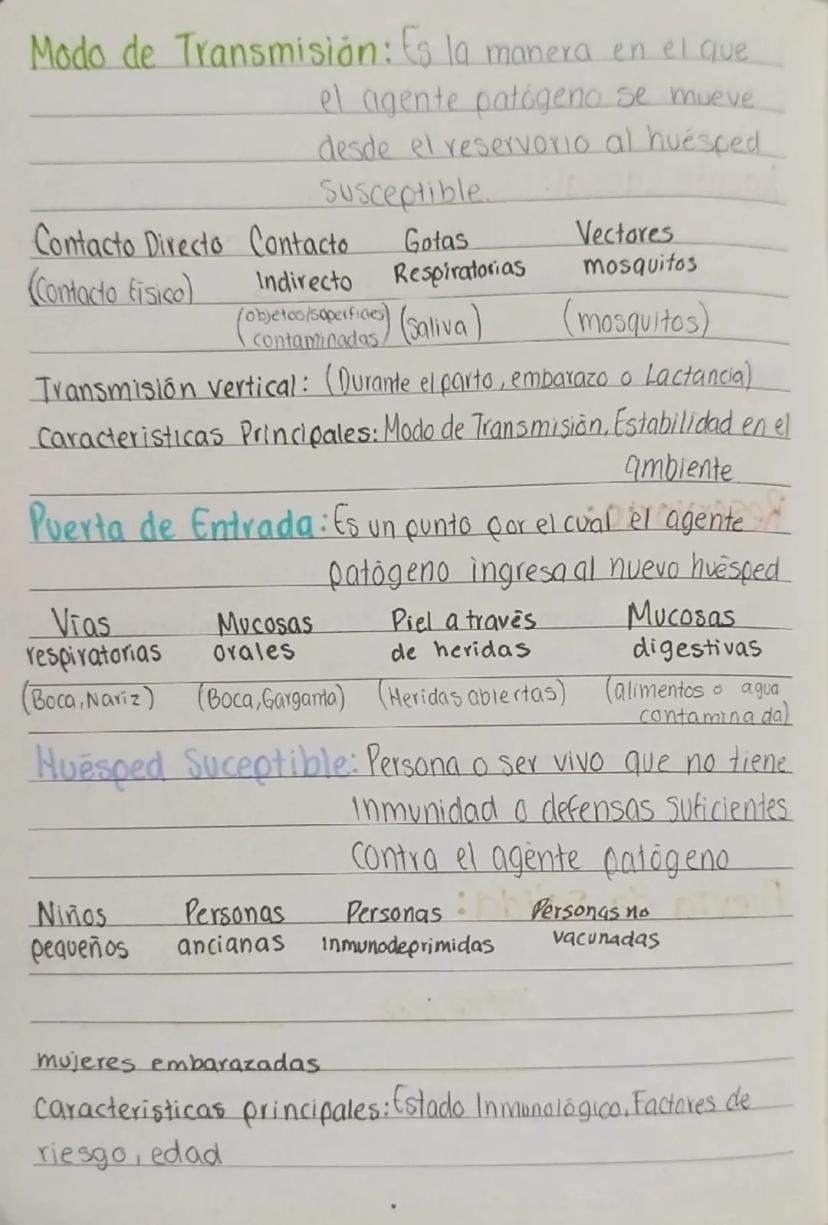 Modo de Transmisión: Es la manera en el que
el agente patógeno se mueve
desde el reservorio al huésped
Susceptible.
Contacto Directo Contacto Gotas Vectores
(Contacto físico) Indirecto Respiratorias mosquitos
(objetos/superficies) (saliva) (mosquitos)
contaminadas
Transmisión vertical: (Durante el parto, embarazo o Lactancia)
Características Principales: Modo de Transmisión, Estabilidad en el
ambiente
Puerta de Entrada: Es un punto por el cual el agente
patógeno ingresa al nuevo huésped
Vías Mucosas Piel a través Mucosas
respiratorias orales de heridas digestivas
(Boca, Nariz) (Boca, Garganta) (Heridas abiertas) (alimentos o agua
contaminada)
Huésped Suceptible: Persona o ser vivo que no tiene
inmunidad o defensas suficientes
contra el agente patógeno
Niños Personas Personas Personas no
pequeños ancianas inmunodeprimidas vacunadas
mujeres embarazadas
características principales: Estado Inmunológico, Factores de
riesgo, edad